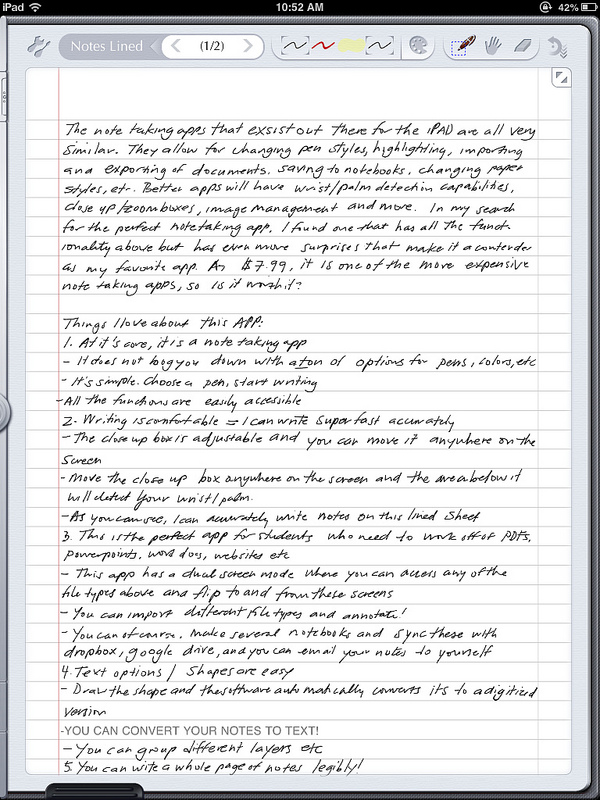 iPad 10:52 AM 42%
Notes Lined (1/2)
The note taking apps that exsist out there for the iPAD are all very
similar. They allow for changing pen styles, highlighting, importing
and exporting of documents, saving to notebooks, changing paper
styles, etc. Better apps will have wrist/palm detection capabilities,
close up/zoom boxes, image management and more. In my search
for the perfect notetaking app, I found one that has all the funct-
ionality above but has even more surprises that make it a contender
as my favorite app. At $7.99, it is one of the more expensive
note taking apps, so is it worth it?
Things I love about this APP:
1. At it's core, it is a note taking app
- It does not bog you down with a ton of options for pens, colors, etc
- It's simple. Choose a pen, start writing
- All the functions are easily accessible
2. Writing is comfortable = I can write super fast accurately
- The close up box is adjustable and you can move it anywhere on the
screen
- Move the close up box anywhere on the screen and the area below it
will detect your wrist/palm.
- As you can see, I can accurately write notes on this lined sheet
3. This is the perfect app for students who need to work off of PDFs,
powerpoints, word docs, websites etc
- This app has a dual screen mode where you can access any of the
file types above and flip to and from these screens
- You can import different file types and annotate!
- You can of course, make several notebooks and sync these with
dropbox, google drive, and you can email your notes to yourself
4. Text options / Shapes are easy
- Draw the shape and the software automatically converts its to a digitized
version
-YOU CAN CONVERT YOUR NOTES TO TEXT!
- You can group different layers etc
5. You can write a whole page of notes legibly!